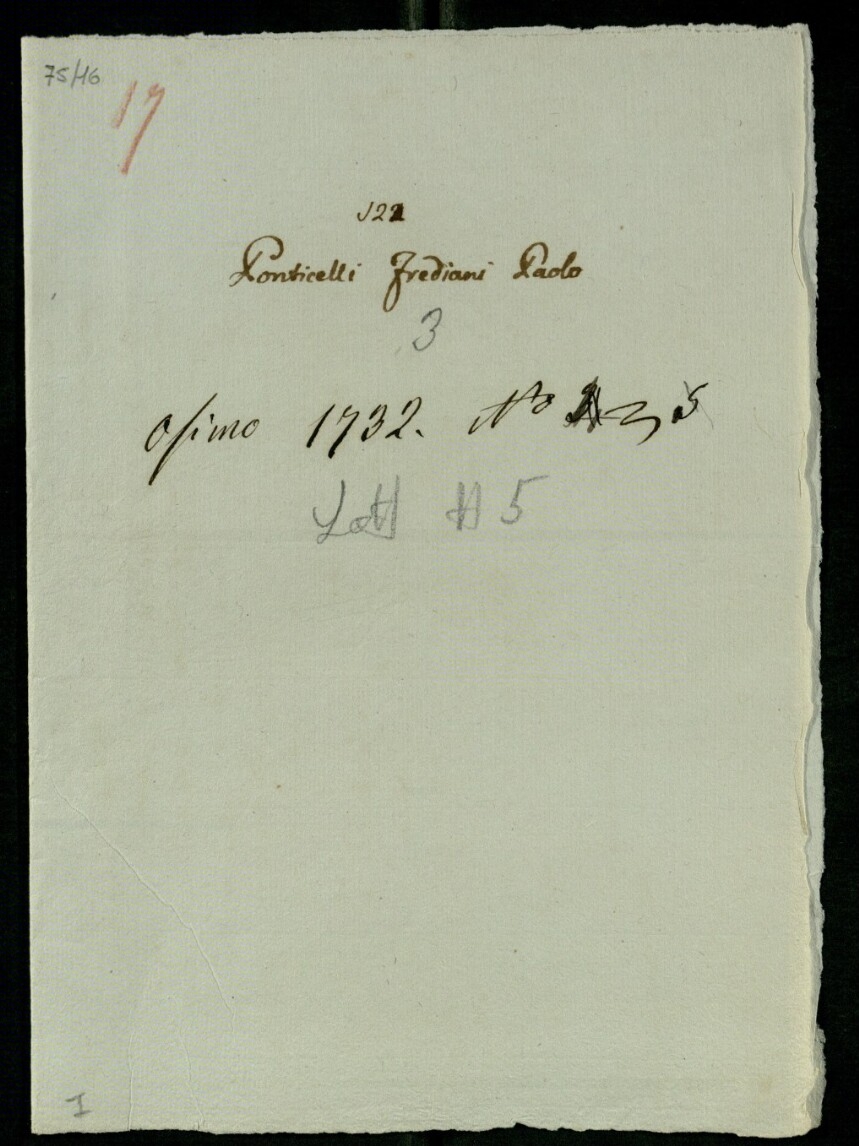 75/16
17
122
Ponticelli Frediani Paolo
3
Osimo 1732. No 5
Lett 5
I